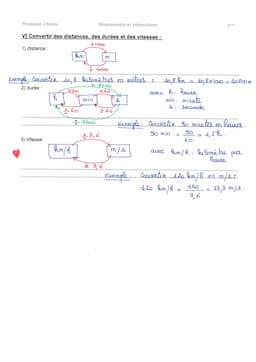 Physique Chimie Mouvements et interactions
V) Convertir des distances, des durées et des vitesses :
1) distance :
x 1000
km m
÷ 1000
Exemple : Convertir 10,8 kilomètres en mètres : 10,8 km = 10,8 x 1000 = 10800 m
2) durée :
x 3600
x 60 x 60
h min s
÷ 60 ÷ 60
÷ 3600
avec h : heure
min : minute
s : seconde
Exemple : Convertir 90 minutes en heures
90 min = 90/60 = 1,5 h
3) Vitesse :
÷ 3,6
km/h m/s
x 3,6
avec km/h : kilomètre par heure
Exemple : Convertir 120 km/h en m/s :
120 km/h = 120/3,6 = 33,3 m/s.